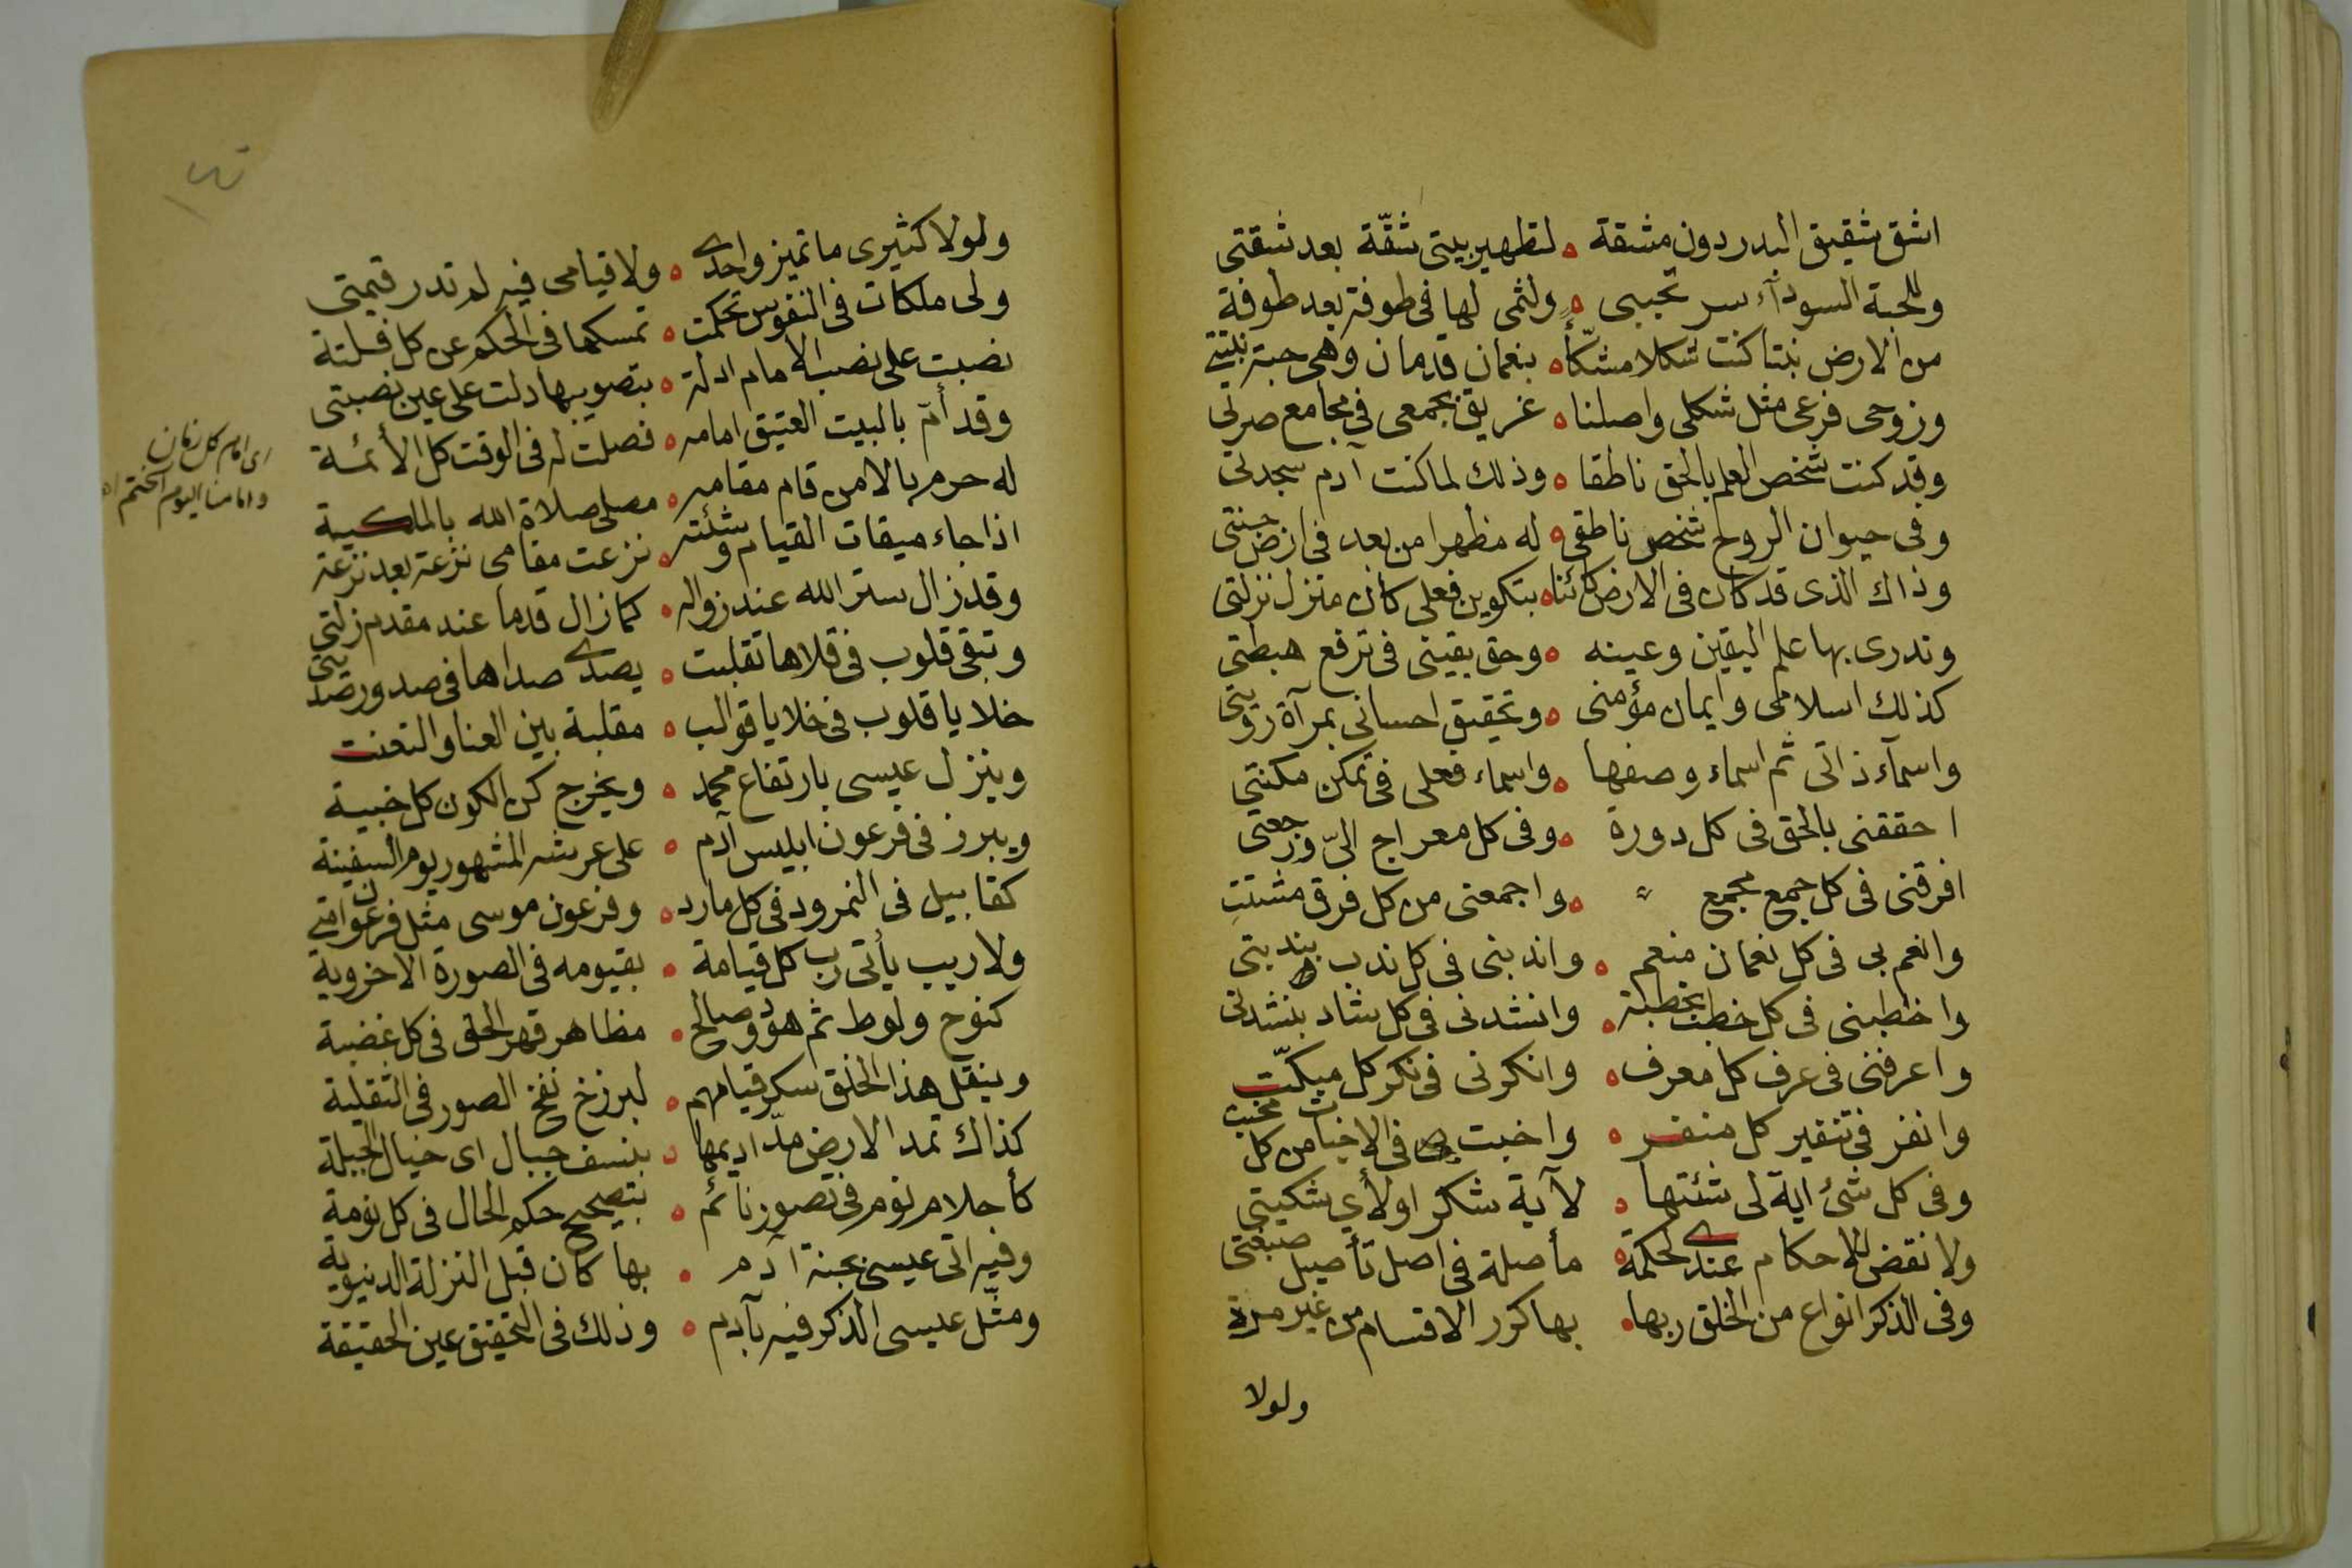 اشق شقيق البدر دون مشقة ه لتطهير بيتى شقّة بعد شقتى
وللحبة السودآء سر تحببى ه ولثمى لها فى طوفة بعد طوفة
من الارض نبتا كنت شكلا مشكّأ ه بنعمان قدمان وهى حبة نبتتى
وزوجى فرعى مثل شكلى واصلنا ه غريق بجمعى فى مجامع صرتى
وقد كنت شخص العلم بالحق ناطقا ه وذلك لما كنت آدم سجدتى
وفى حيوان الروح شخص ناطقى ه له مظهرا من بعد فى ارض جنتى
وذاك الذى قد كان فى الارض كائنا ه بتكوين فعلى كان منزل نزلتى
وتدرى بها علم اليقين وعينه ه وحق يقينى فى ترفع هبطتى
كذلك اسلامى وايمان مؤمنى ه وتحقيق احسانى بمرآة رويتى
واسمآء ذاتى ثم اسماء وصفها ه واسماء فعلى فى تمكن مكنتى
احققنى بالحق فى كل دورة ه وفى كل معراج الىّ ورجعتى
افرقنى فى كل جمع مجمع ه واجمعنى من كل فرق مشتت
وانعم بى فى كل نعمان منعم ه واندبنى فى كل ندب بندبتى
واخطبنى فى كل خطب بخطبة ه وانشدنى فى كل شاد بنشدتى
واعرفنى فى عرف كل معرف ه وانكرنى فى نكر كل مبكّت
وانفر فى تنفير كل منفر ه واخبت فى الاخبات من كل مخبت
وفى كل شئ اية لى شئتها ه لآية شكر او لأى شكيتى
ولا نقض للاحكام عندى لحكمة ه مأصلة فى اصل تأصيل صبغتى
وفى الذكر انواع من الخلق ربها ه بها كرر الاقسام من غير مرة
ولولا
ولولا كثيرى ما تميز واحدى ه ولا قيامى فيه لم تدر قيمتى
ولى ملكات فى النفوس تحكمت ه تمسكها فى الحكم عن كل فلتة
نصبت على نصب الامام ادلة ه بتصويبها دلت على عين نصبتى
وقد أمّ بالبيت العتيق امامه ه فصلت له فى الوقت كل الأئمة
له حرم بالامن قام مقامه ه مصلى صلاة الله بالملكية
اذا جاء ميقات القيام وشئته ه نزعت مقامى نزعة بعد نزعة
وقد زال ستر الله عند زواله ه كما زال قدما عند مقدم زلتى
وتبقى قلوب فى قلاها تقلبت ه يصدى صداها فى صدور
خلايا قلوب فى خلايا قوالب ه مقلبة بين العنا والتعنت
وينزل عيسى بارتفاع محمد ه ويخرج كن الكون كل خبية
ويبرز فى فرعون ابليس آدم ه على عرشه المشهور يوم السفينة
كقابيل فى النمرود فى كل مارد ه وفرعون موسى مثل فرعون امتى
ولا ريب يأتى رب كل قيامة ه بقيومه فى الصورة الاخروية
كنوح ولوط ثم هود وصالح ه مظاهر قهر الحق فى كل غضبة
وينقل هذا الخلق سكر قيامهم ه لبرزخ نفخ الصور فى الثقلية
كذاك تمد الارض مدّ اديمها ه بنسف جبال اى خيال الجبلة
كأحلام نوم فى تصور نائم ه بتصحيح حكم الحال فى كل نومة
وفيه اتى عيسى بجنة آدم ه بها كان قبل النزلة الدنيوية
ومثّل عيسى الذكر فيه بآدم ه وذلك فى التحقيق عين الحقيقة
اى امام كل زمان
وامامنا اليوم الختم اه